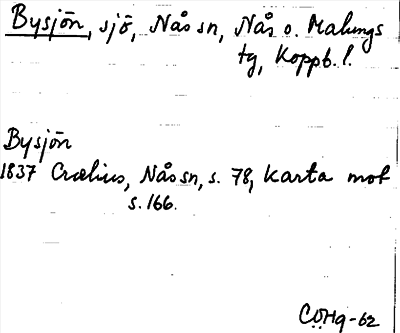 Bysjön, sjö, Nås sn, Nås o. Malungs
tg, Koppb. l.
Bysjön
1837 Crælius, Nås sn, s. 78, Karta mot
s. 166.
CÖHg-62